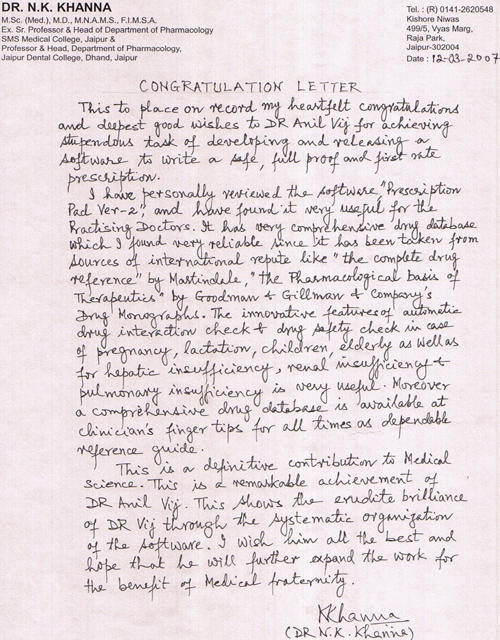 DR. N.K. KHANNA
M.Sc. (Med.), M.D., M.N.A.M.S., F.I.M.S.A.
Ex. Sr. Professor & Head of Department of Pharmacology
SMS Medical College, Jaipur &
Professor & Head, Department of Pharmacology,
Jaipur Dental College, Dhand, Jaipur
Tel. : (R) 0141-2620548
Kishore Niwas
499/5, Vyas Marg,
Raja Park,
Jaipur-302004
Date : 12-03-2007
CONGRATULATION LETTER
This to place on record my heartfelt congratulations
and deepest good wishes to DR Anil Vij for achieving
stupendous task of developing and releasing a
software to write a safe, full proof and first rate
prescription.
I have personally reviewed the software "Prescription
Pad Ver-2", and have found it very useful for the
Practising Doctors. It has very comprehensive drug database
which I found very reliable since it has been taken from
sources of international repute like "the complete drug
reference" by Martindale, "the Pharmacological basis of
Therapeutics" by Goodman & Gillman & Company's
Drug Monographs. The innovative features of automatic
drug interaction check & drug safety check in case
of pregnancy, lactation, children, elderly as well as
for hepatic insufficiency, renal insufficiency &
pulmonary insufficiency is very useful. Moreover
a comprehensive drug database is available at
clinician's finger tips for all times as dependable
reference guide.
This is a definitive contribution to Medical
science. This is a remarkable achievement of
DR Anil Vij. This shows the erudite brilliance
of DR Vij through the systematic organization
of the software. I wish him all the best and
hope that he will further expand the work for
the benefit of Medical fraternity.
KKhanna
(DR N.K. Khanna)